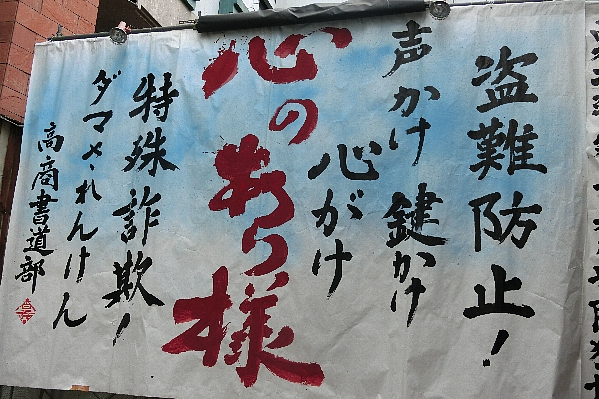 盗難防止！
声かけ 鍵かけ
心がけ
心のあり様
特殊詐欺！
ダマされんけん
高商書道部